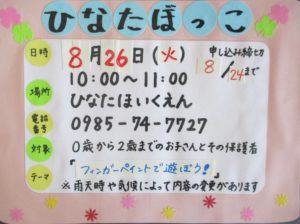 ひなたぼっこ
日時 8月26日(火) 申し込み締切 8/24まで
10:00〜11:00
場所 ひなたほいくえん
電話番号 0985-74-7727
対象 0歳から2歳までのお子さんとその保護者
テーマ 「フィンガーペイントで遊ぼう!」
※雨天時や気候によって内容の変更があります